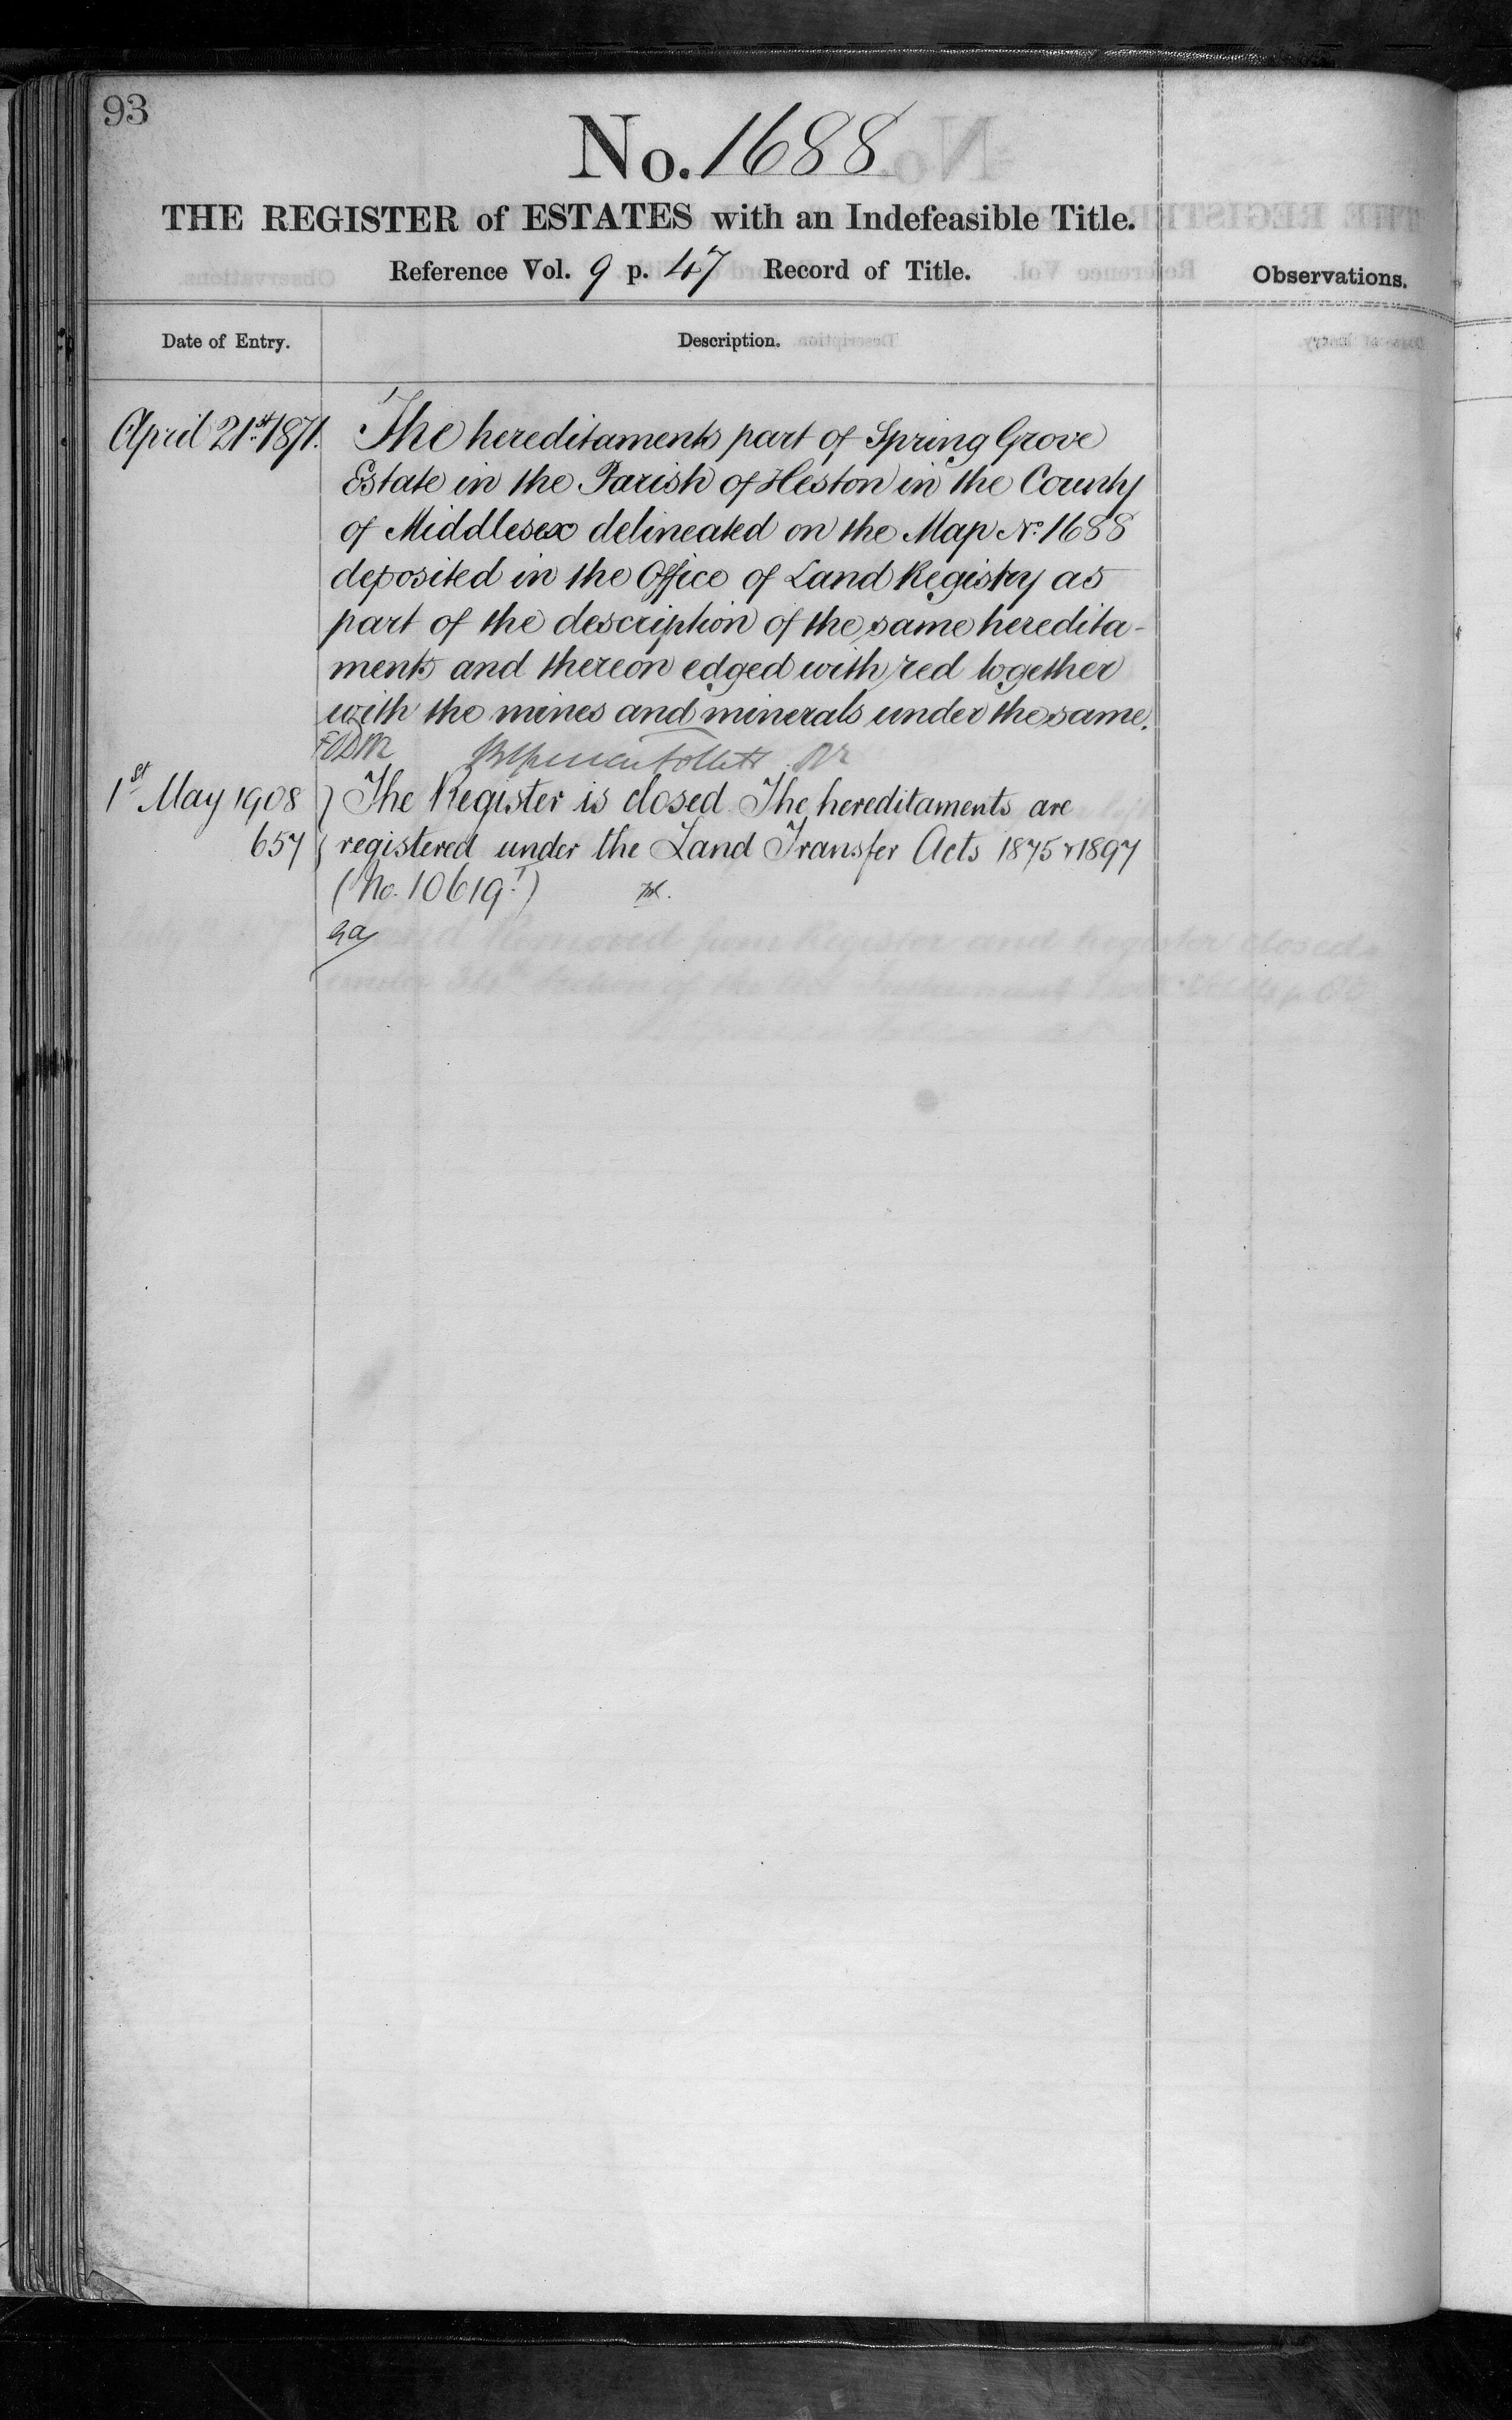 93
No. 1688
THE REGISTER of ESTATES with an Indefeasible Title.
Reference Vol. 9 p. 47 Record of Title.
Observations.
Date of Entry.
Description.
April 21st. 1871.
The hereditaments part of Spring Grove
Estate in the Parish of Heston in the County
of Middlesex delineated on the Map No. 1688
deposited in the Office of Land Registry as
part of the description of the same heredita-
ments and thereon edged with red together
with the mines and minerals under the same.
Follett
1st May 1908
657
The Register is closed The hereditaments are
registered under the Land Transfer Acts 1875 & 1897
(No. 10619.)